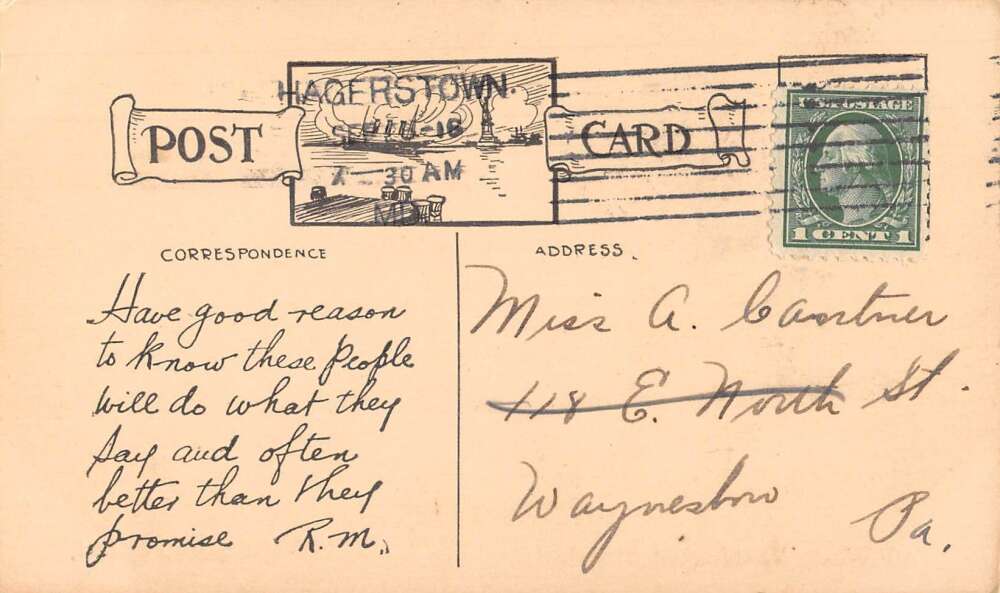 HAGERSTOWN.
7 - 30 AM
MD.
POST CARD
U.S. POSTAGE
1 CENT 1
CORRESPONDENCE
ADDRESS.
Have good reason
to know these People
will do what they
say and often
better than they
promise R.M.
Miss A. Cantner
118 E. North St.
Waynesboro
Pa.